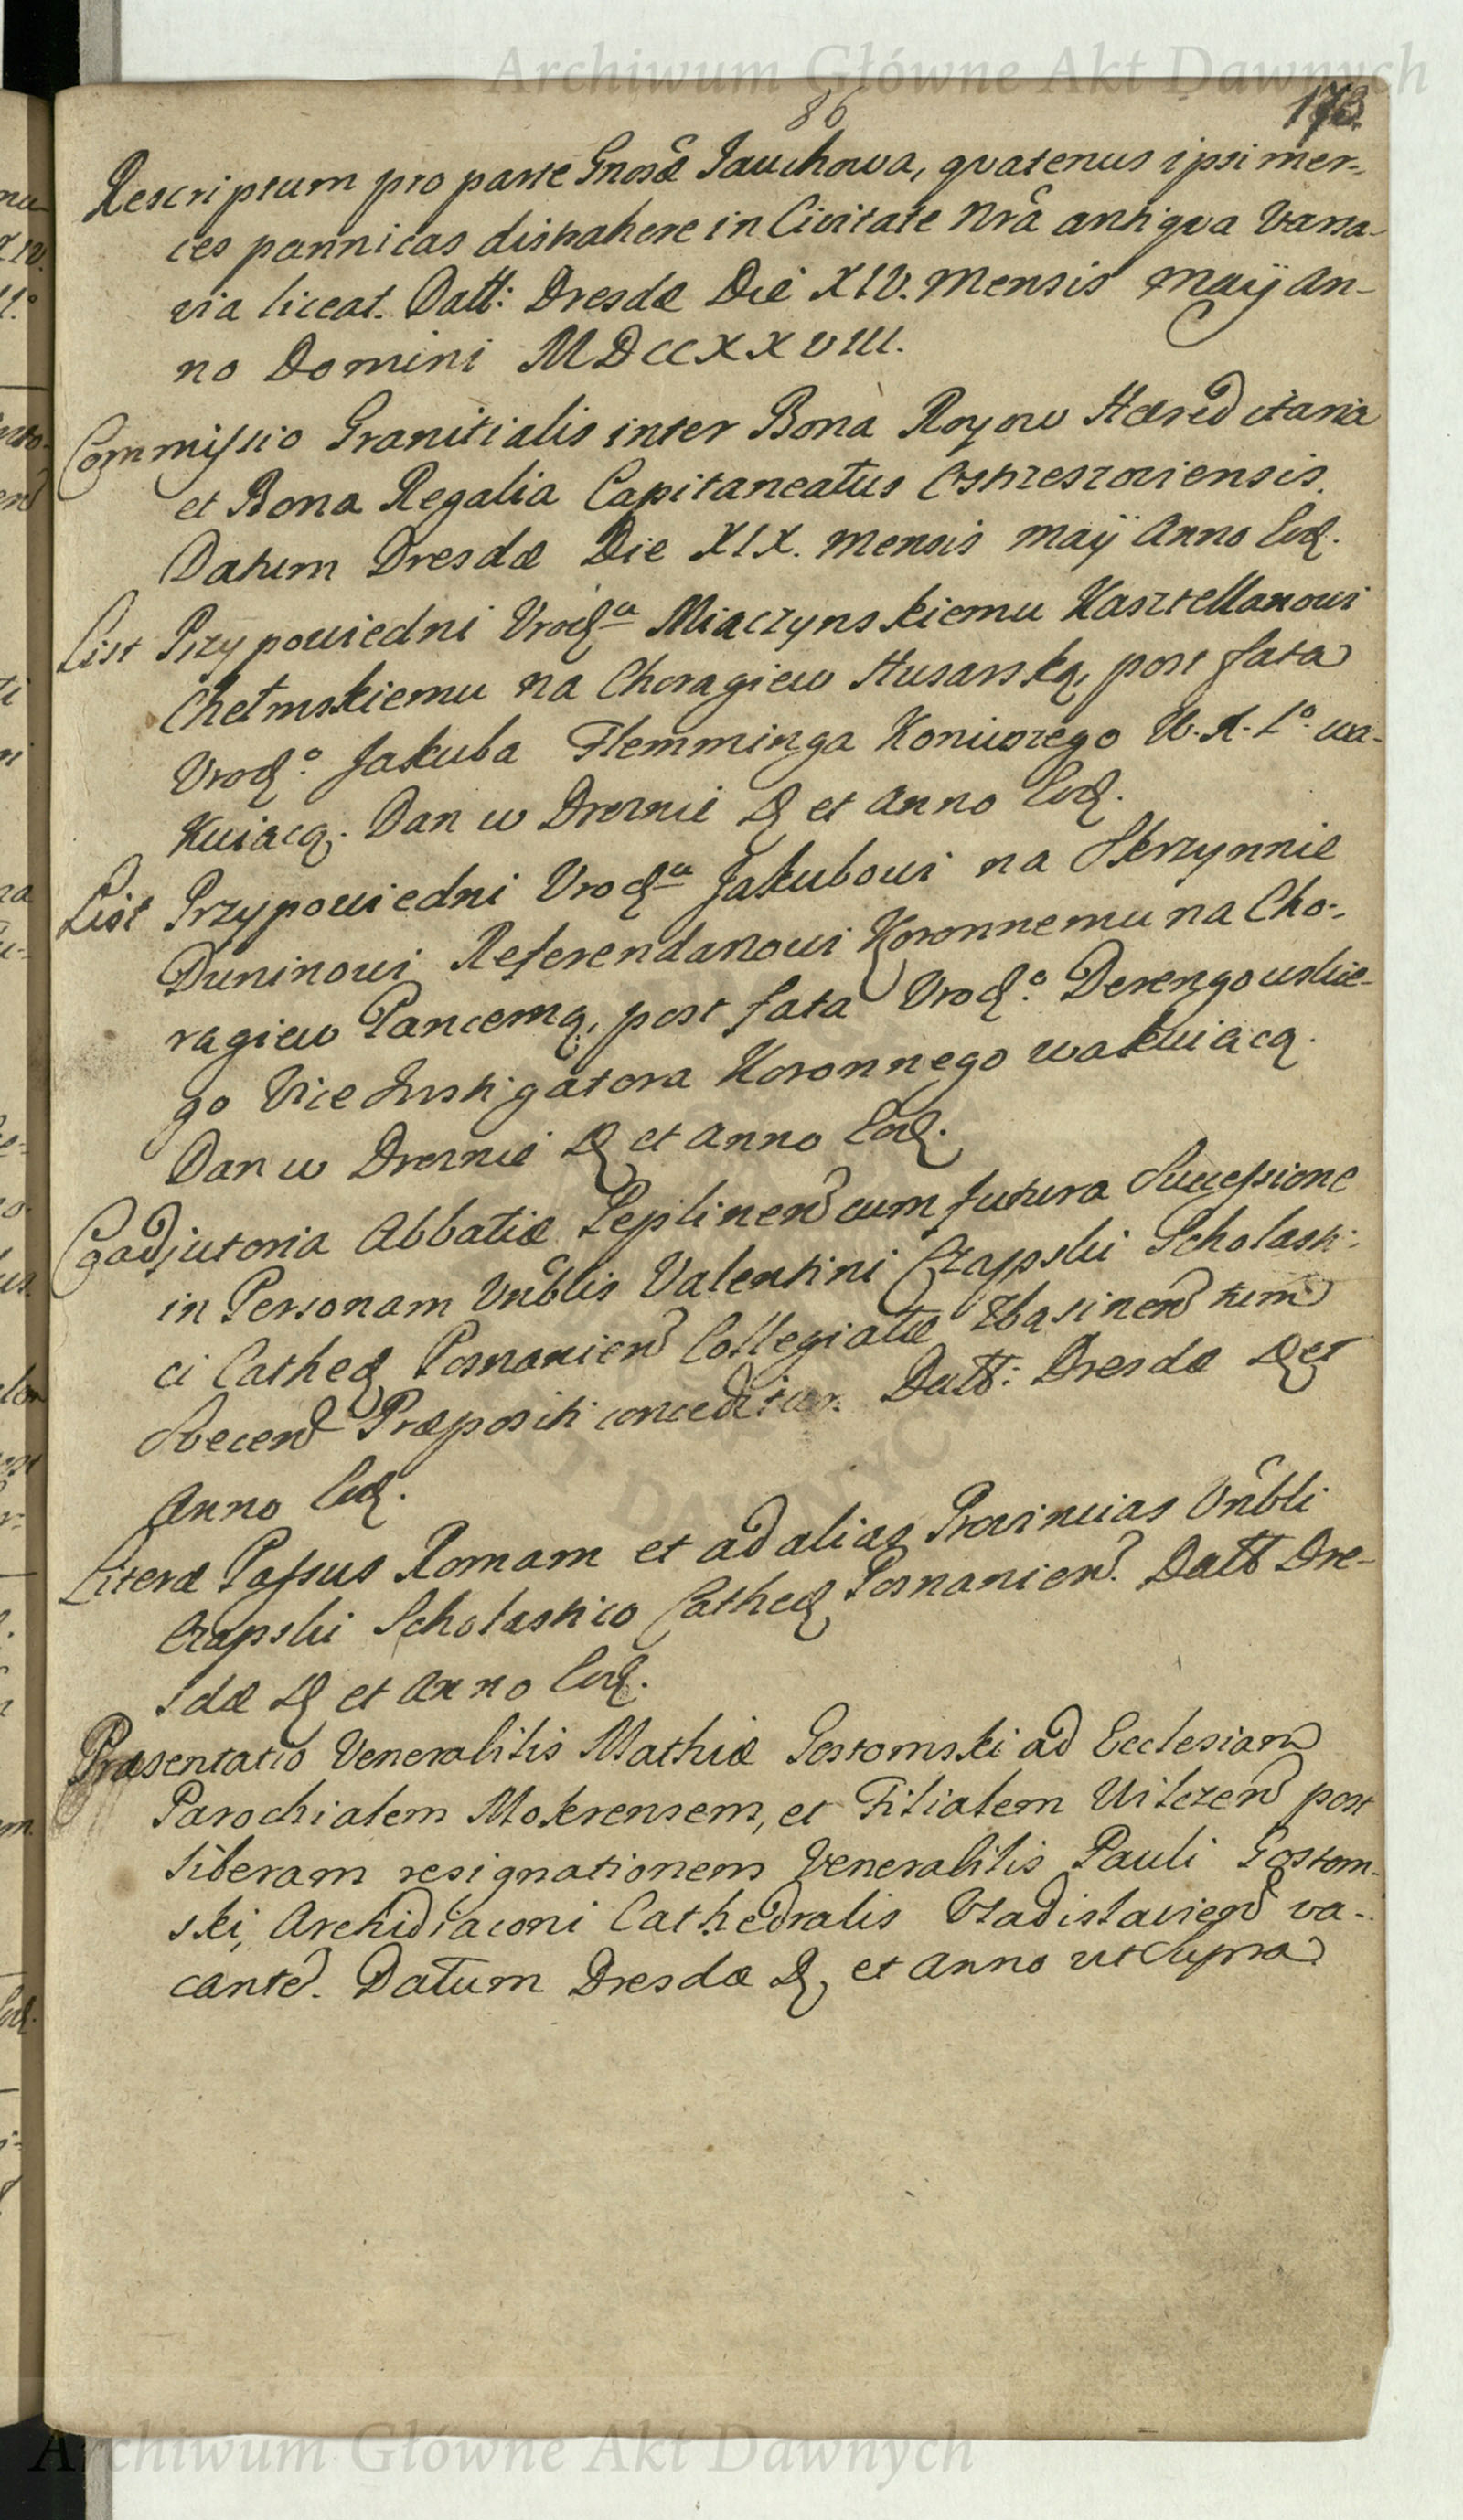 Archiwum Główne Akt Dawnych
86
Rescriptum pro parte Gnosæ Jauchowa, qvatenus ipsi mer-
ces pannicas distrahere in Civitate Nrâ antiqva Varsa-
via liceat. Datt: Dresdæ Die XIV. Mensis Maÿ An-
no Domini MDCCXXVIII.
Commissio Granitialis inter Bona Royow Hæreditaria
et Bona Regalia Capitaneatus Ostrzeszoviensis.
Datum Dresdæ Die XIX. Mensis Maÿ Anno Eod.
List Przypowiedni Urodzᵘ Miaczynskiemu Kasztellanowi
Chełmskiemu na Choragiew Husarską, post fata
Urodzº. Jakuba Flemminga Koniuszego W. X. Lº. wa-
kuiacą. Dan w Dreznie D et Anno Eod.
List Przypowiedni Urodzᵘ Jakubowi na Skrzynnie
Duninowi Referendarzowi Koronnemu na Cho-
ragiew Pancerną, post fata Urodzº. Derengowskie-
go Vice Instigatora Koronnego wakuiacą.
Dan w Dreznie D et Anno Eod.
Coadjutoria Abbatiæ Peplinen cum futura Successione
in Personam Vnêblis Valentini Czapski Scholasti-
ci Cathed Posnanien Collegiatæ Zbasinen tum
Svecen Præpositi conceditur. Datt: Dresdæ D et
Anno Eod.
Literæ Passus Romam et ad alias Provincias Vnêbli
Czapski Scholastico Cathed Posnanien. Datt Dre-
sdæ D et Anno Eod.
Præsentatio Venerabilis Mathiæ Gostomski ad Ecclesiam
Parochialem Mokrensem, et Filialem Wilczen post
liberam resignationem Venerabilis Pauli Gostom-
ski, Archidiaconi Cathedralis Vladislavien va-
cante. Datum Dresdæ D, et Anno ut Supra
Archiwum Główne Akt Dawnych